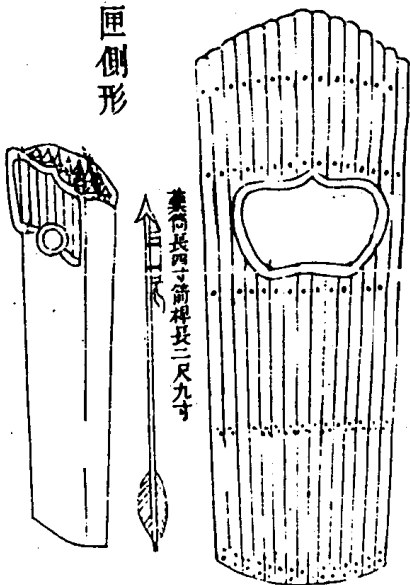 匣側形
藥筒長四寸箭桿長二尺九寸